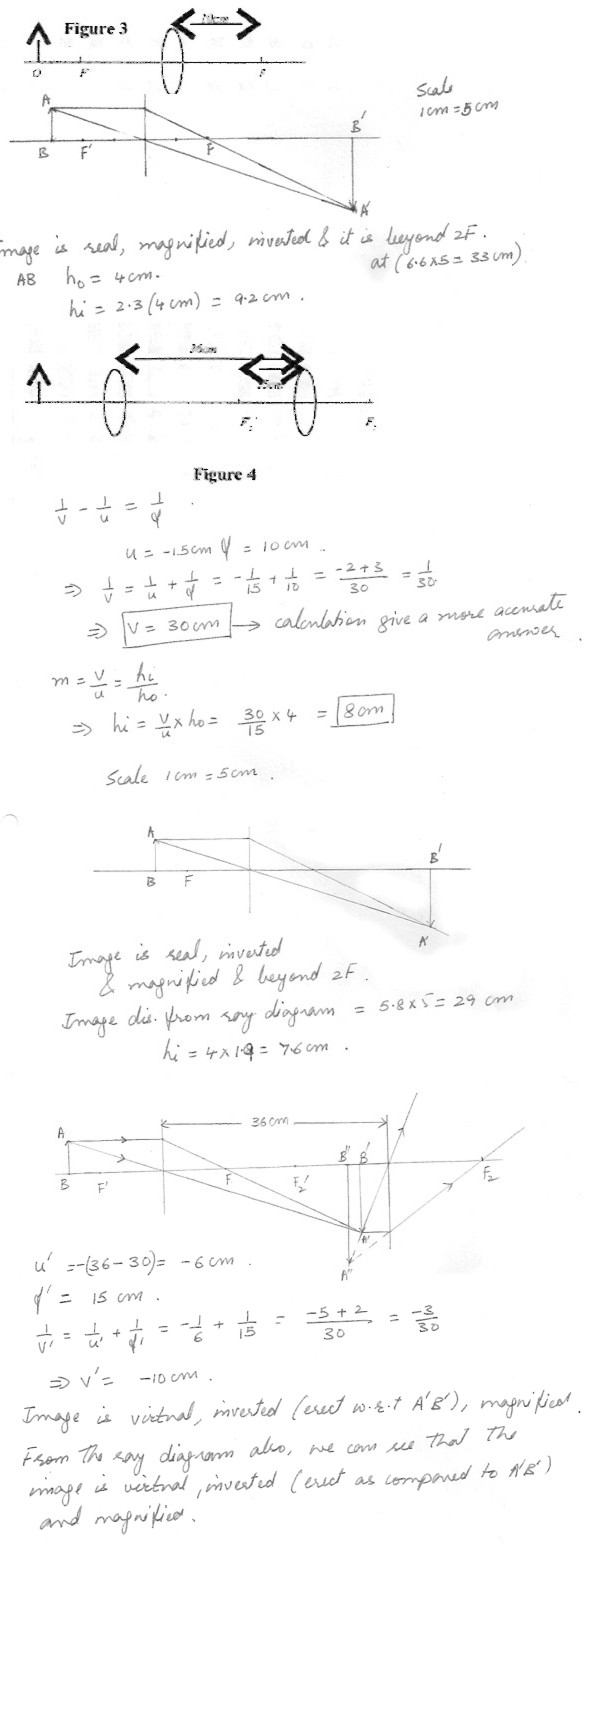 Figure 3
10cm
O F F
Scale
1cm = 5cm
A
B F' F B'
A'
Image is real, magnified, inverted & it is beyond 2F.
at (6.6x5 = 33cm)
AB ho = 4cm.
hi = 2.3(4cm) = 9.2cm.
36cm
15cm
F2' F2
Figure 4
1/v - 1/u = 1/f.
u = -15cm f = 10cm.
⇒ 1/v = 1/u + 1/f = -1/15 + 1/10 = (-2+3)/30 = 1/30
⇒ V = 30cm → calculation give a more accurate
answer.
m = v/u = hi/ho.
⇒ hi = v/u x ho = 30/15 x 4 = 8cm
Scale 1cm = 5cm.
A
B F B'
A'
Image is real, inverted
& magnified & beyond 2F.
Image dis. from ray diagram = 5.8x5 = 29 cm
hi = 4x1.9 = 7.6cm.
36cm
A
B F' F F2' B'' B' F2
A'
A''
u' = -(36-30) = -6cm.
f' = 15 cm.
1/v' = 1/u' + 1/f' = -1/6 + 1/15 = (-5+2)/30 = -3/30
⇒ v' = -10cm.
Image is virtual, inverted (erect w.r.t A'B'), magnified.
From the ray diagram also, we can see that the
image is virtual, inverted (erect as compared to A'B')
and magnified.